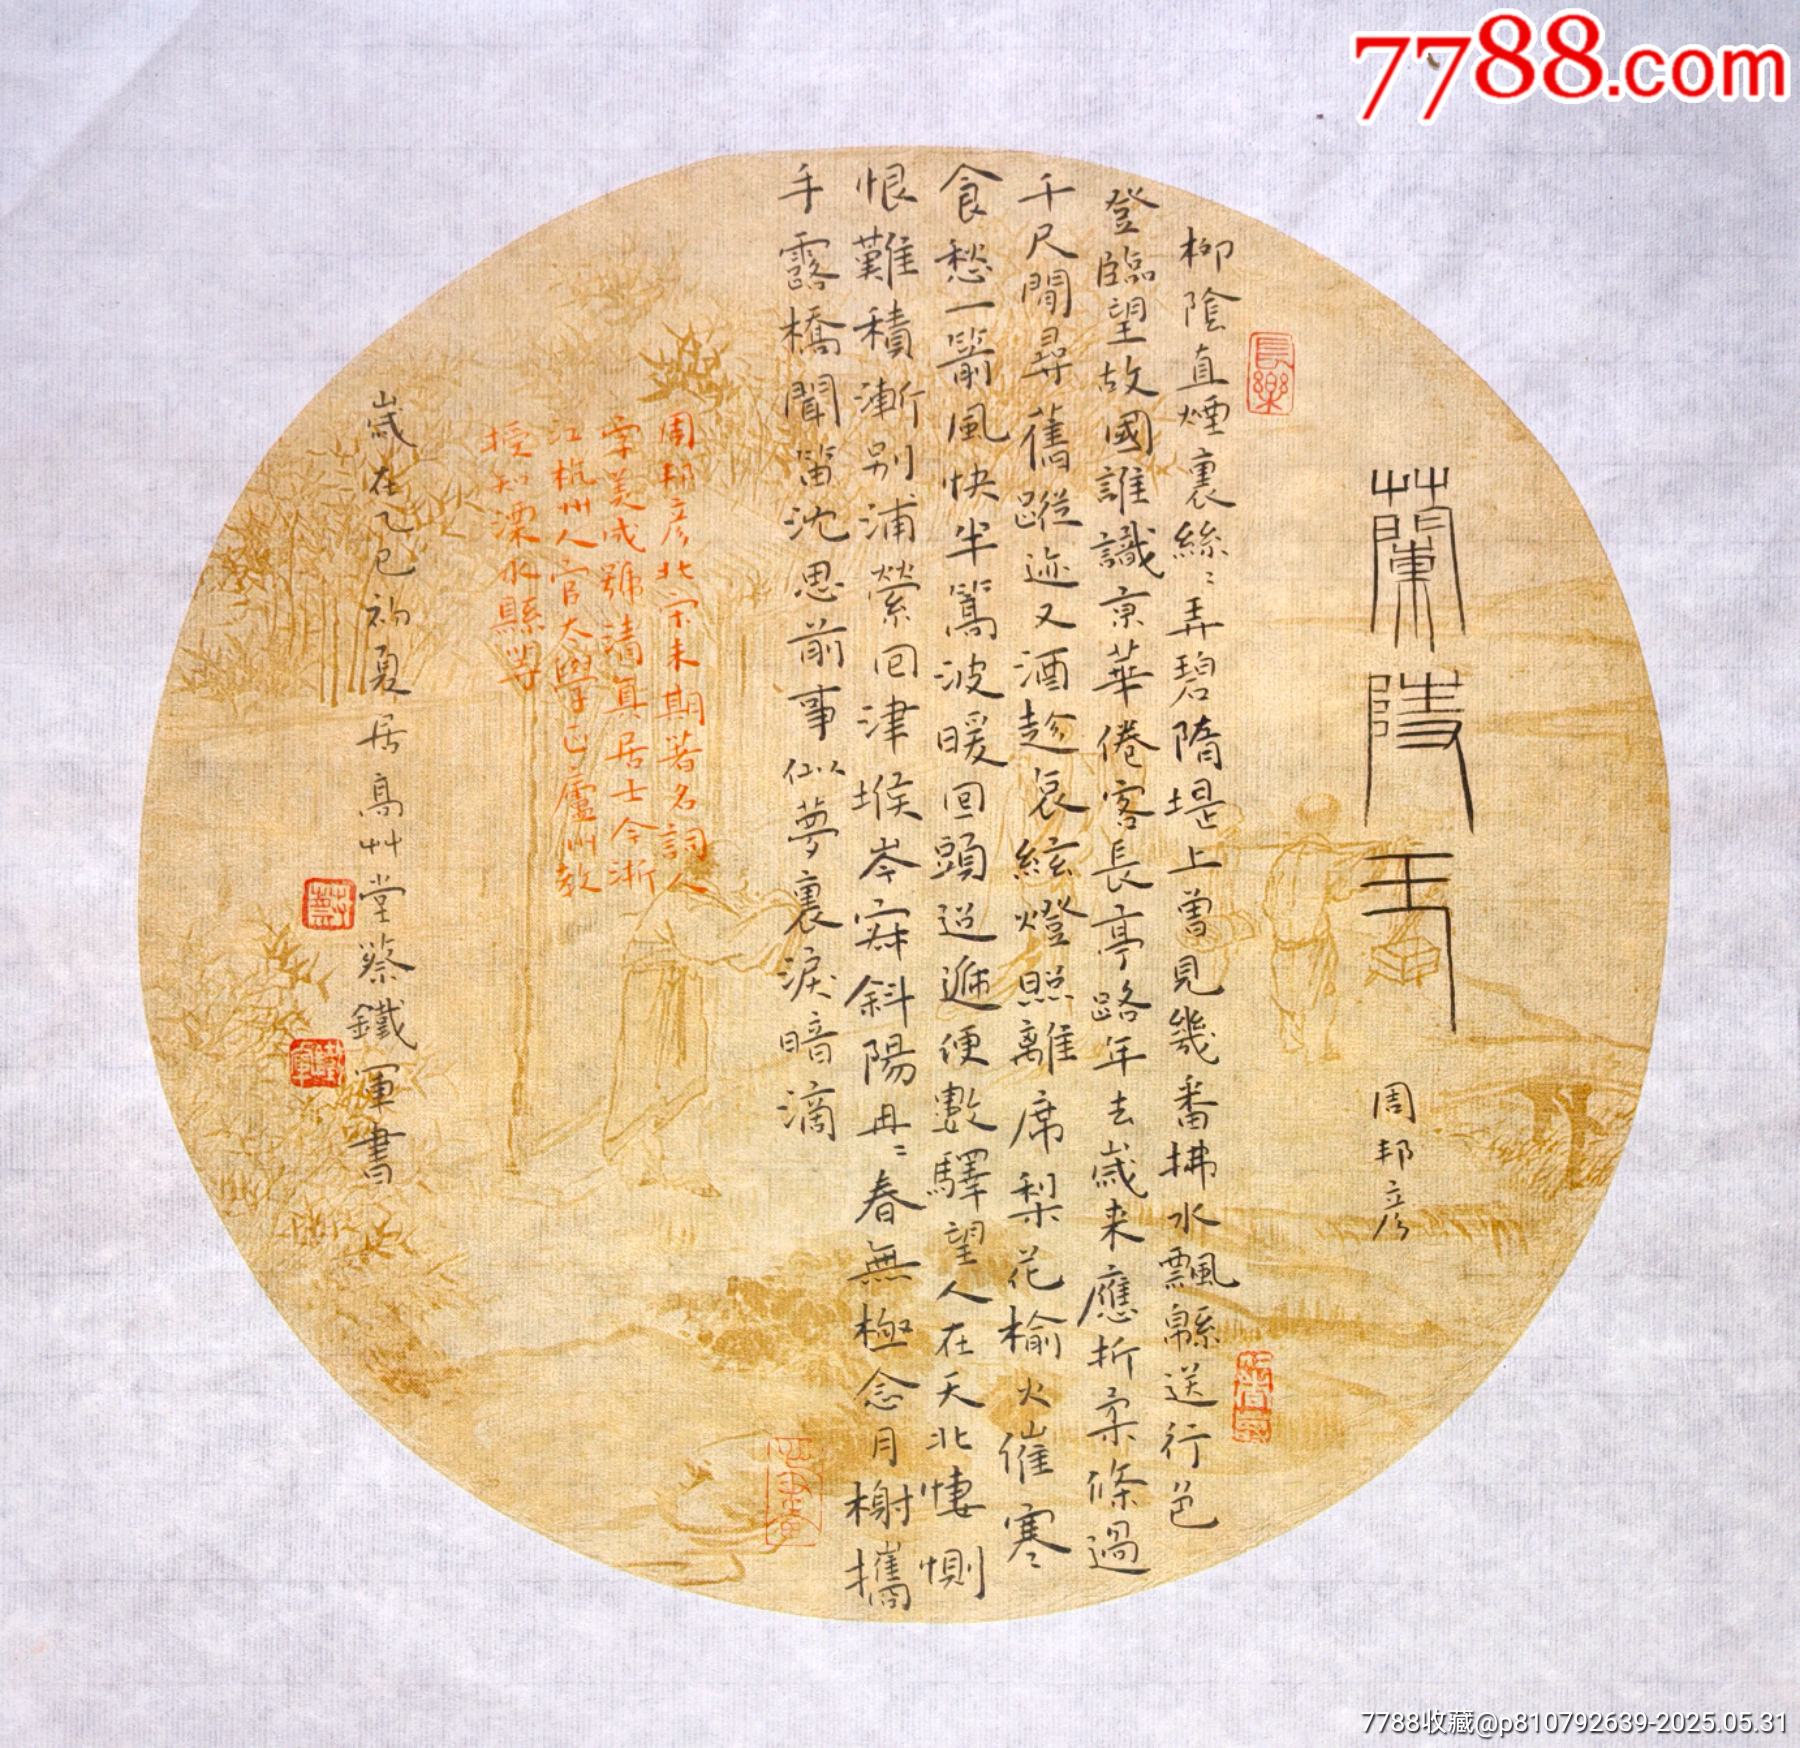 7788.com
蘭陵王
周邦彦
柳陰直煙裏絲〻弄碧隋堤上曾見幾番拂水飄緜送行色
登臨望故國誰識京華倦客長亭路年去歲来應折柔條過
千尺閒尋舊蹤迹又酒趁哀絃燈照離席梨花榆火催寒
食愁一箭風快半篙波暖回頭迢遞便數驛望人在天北悽惻
恨難積漸別浦縈回津堠岑寂斜陽冉〻春無極念月榭攜
手露橋聞笛沈思前事似夢裏淚暗滴
周邦彦北宋末期著名詞人
字美成號清真居士今浙
江杭州人官太學正廬州教
授知溧水縣等
歲在乙巳初夏居高艸堂蔡鐵軍書
長樂
7788收藏@p810792639-2025.05.31